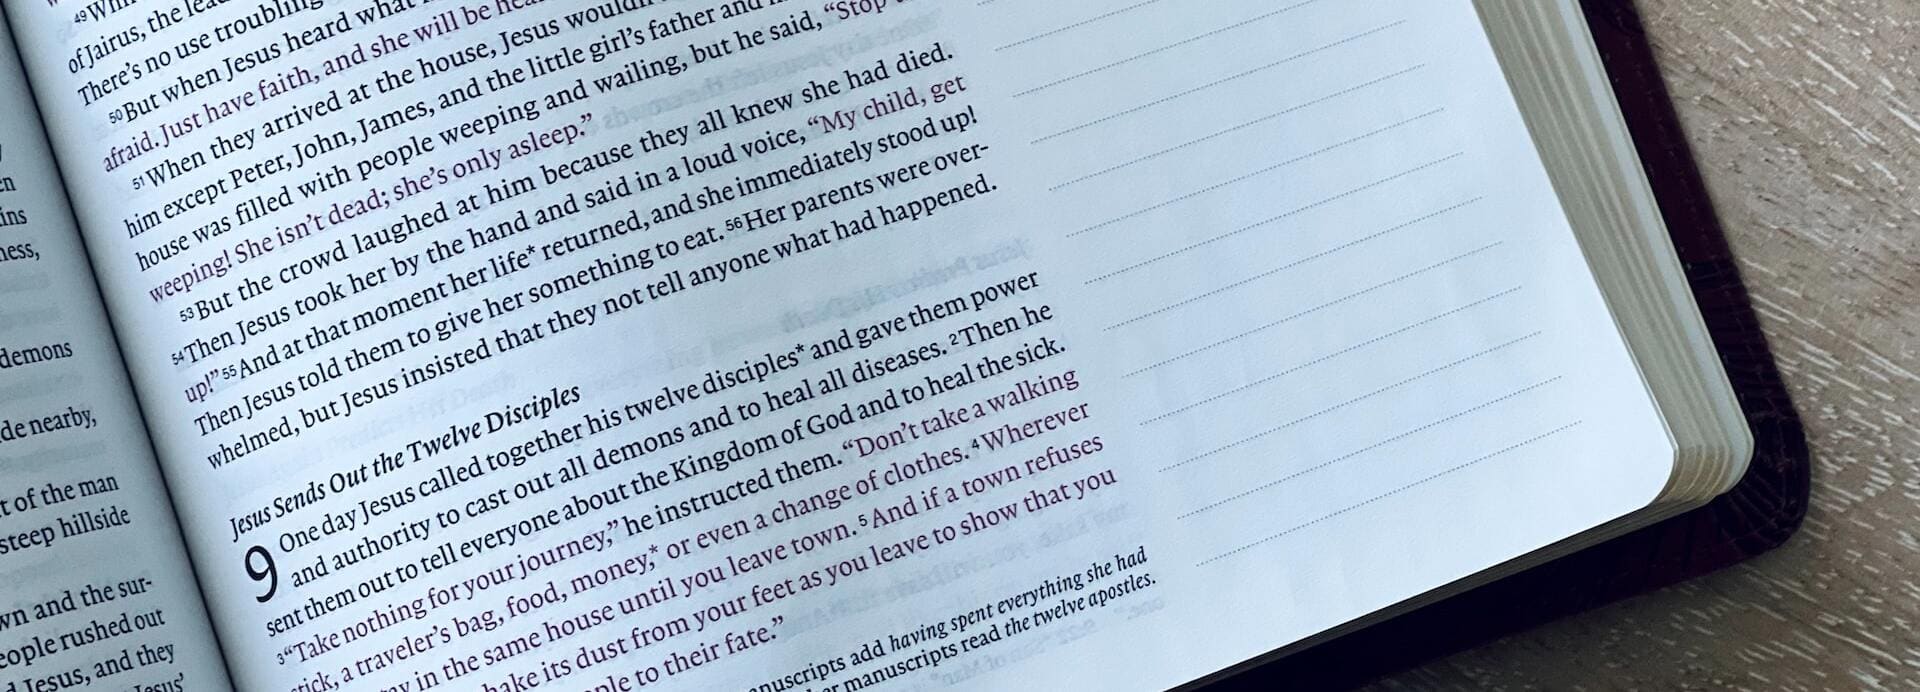 en
ins
ness,
demons
de nearby,
t of the man
steep hillside
wn and the sur-
eople rushed out
Jesus, and they
Jesus'
49
of Jairus, the
There's no use troubling
50 But when Jesus heard what
afraid. Just have faith, and she will be
51 When they arrived at the house, Jesus wouldn't
him except Peter, John, James, and the little girl's father and
house was filled with people weeping and wailing, but he said, “Stop
weeping! She isn't dead; she's only asleep.”
53 But the crowd laughed at him because they all knew she had died.
54 Then Jesus took her by the hand and said in a loud voice, “My child, get
up!” 55 And at that moment her life* returned, and she immediately stood up!
Then Jesus told them to give her something to eat. 56 Her parents were over-
whelmed, but Jesus insisted that they not tell anyone what had happened.
Jesus Sends Out the Twelve Disciples
9 One day Jesus called together his twelve disciples* and gave them power
and authority to cast out all demons and to heal all diseases. 2 Then he
sent them out to tell everyone about the Kingdom of God and to heal the sick.
3 “Take nothing for your journey,” he instructed them. “Don't take a walking
stick, a traveler's bag, food, money,* or even a change of clothes. 4 Wherever
in the same house until you leave town. 5 And if a town refuses
its dust from your feet as you leave to show that you
to their fate.”
manuscripts add having spent everything she had
manuscripts read the twelve apostles.